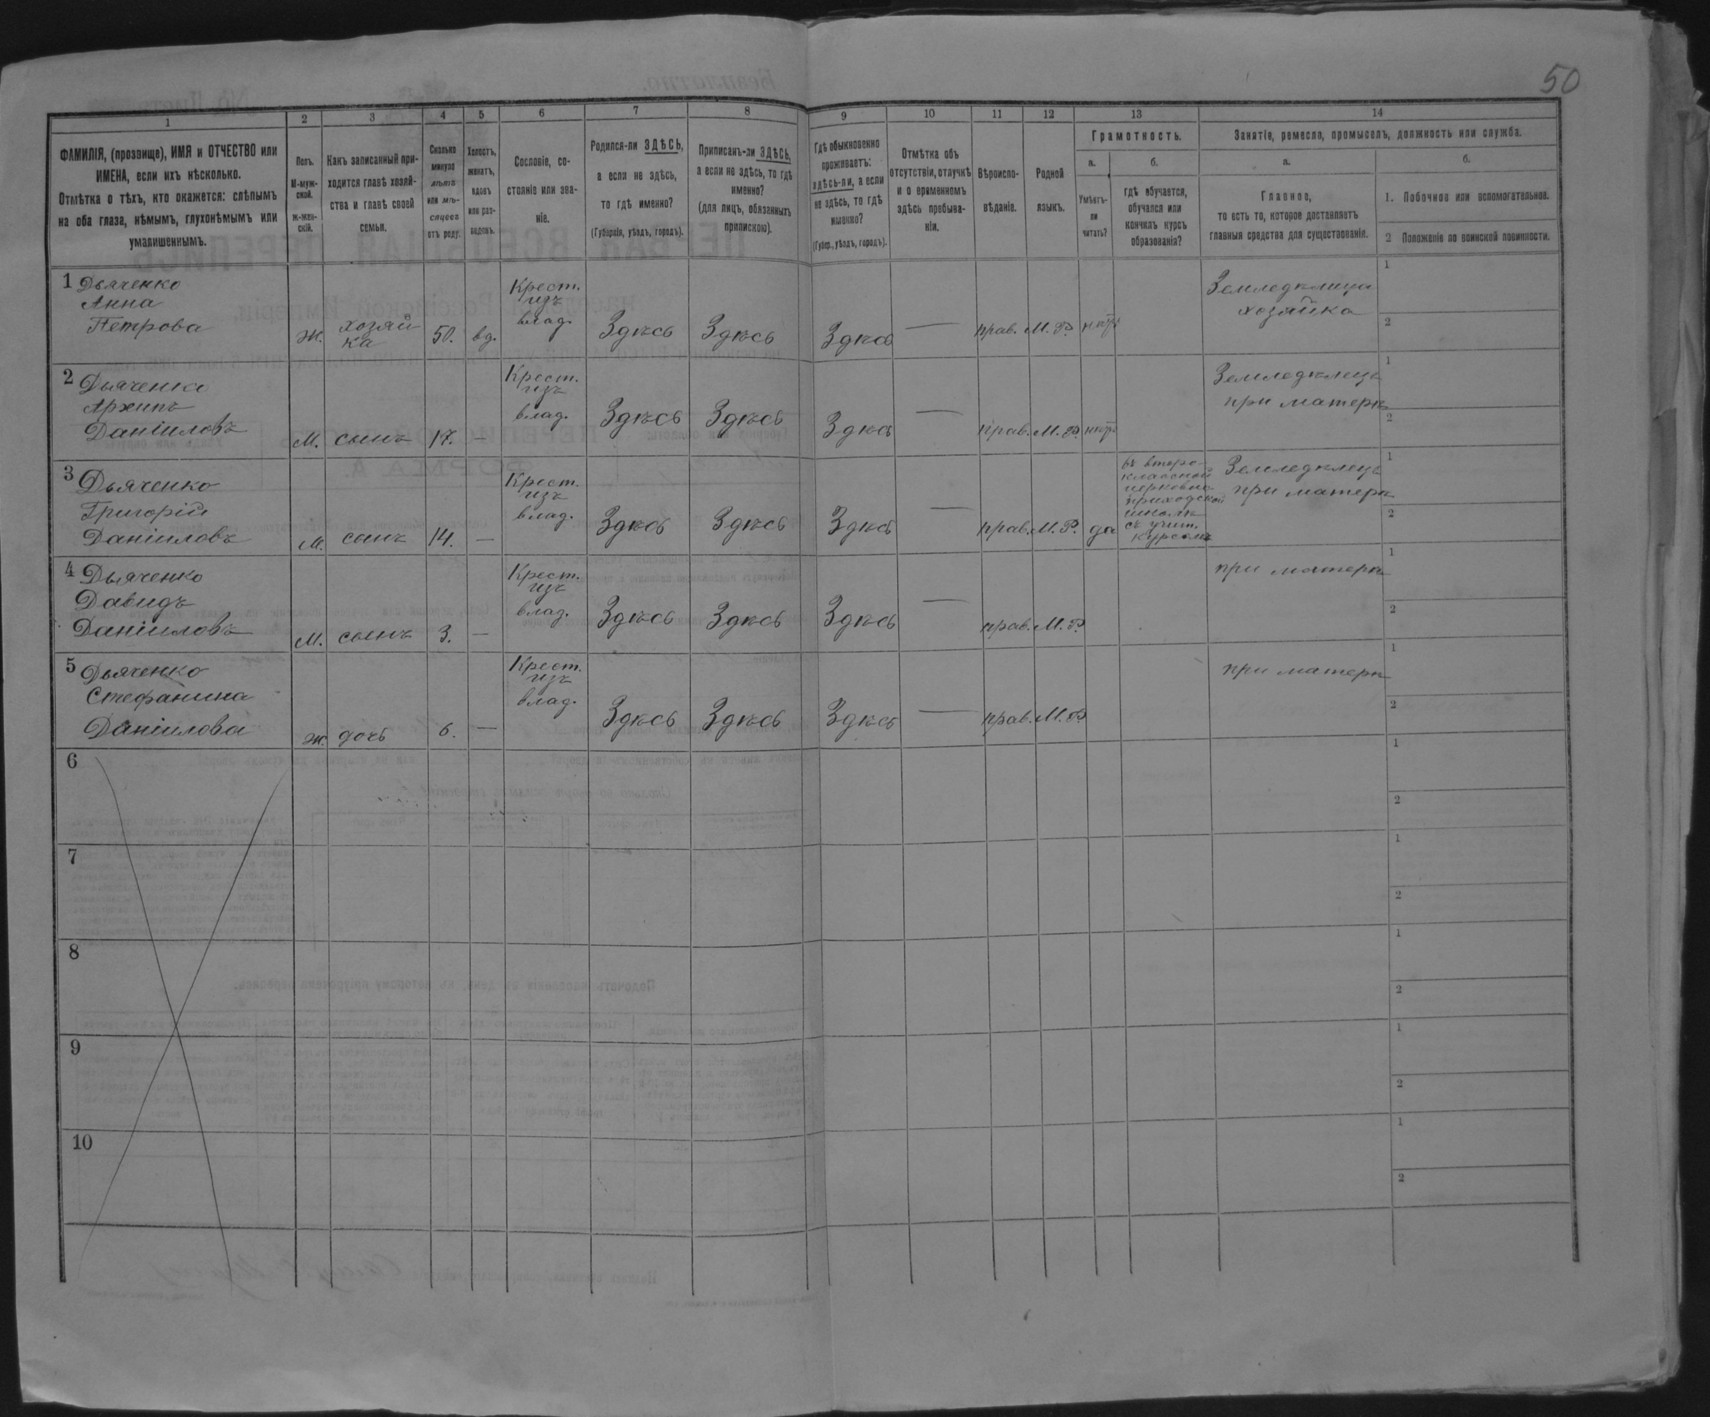 50
1 2 3 4 5 6 7 8 9 10 11 12 13 14
ФАМИЛІЯ, (прозвище), ИМЯ и ОТЧЕСТВО или
ИМЕНА, если ихъ нѣсколько.
Отмѣтка о тѣхъ, кто окажется: слѣпымъ
на оба глаза, нѣмымъ, глухонѣмымъ или
умалишеннымъ.
Полъ.
М-муж-
ской.
Ж-жен-
скій.
Какъ записанный при-
ходится главѣ хозяй-
ства и главѣ своей
семьи.
Сколько
минуло
лѣтъ
или мѣ-
сяцевъ
отъ роду.
Холостъ,
женатъ,
вдовъ
или раз-
веденъ.
Сословіе, со-
стояніе или зва-
ніе.
Родился-ли ЗДѢСЬ,
а если не здѣсь,
то гдѣ именно?
(Губернія, уѣздъ, городъ).
Приписанъ-ли ЗДѢСЬ,
а если не здѣсь, то гдѣ
именно?
(для лицъ, обязанныхъ
припискою).
Гдѣ обыкновенно
проживаетъ:
здѣсь-ли, а если
не здѣсь, то гдѣ
именно?
(Губер., уѣздъ, городъ).
Отмѣтка объ
отсутствіи, отлучкѣ
и о временномъ
здѣсь пребыва-
ніи.
Вѣроиспо-
вѣданіе.
Родной
языкъ.
Грамотность.
а.
Умѣетъ-
ли
читать?
б.
гдѣ обучается,
обучался или
кончилъ курсъ
образованія?
Занятія, ремесло, промыселъ, должность или служба.
а.
Главное,
то есть то, которое доставляетъ
главныя средства для существованія.
б.
1. Побочное или вспомогательное.
2 Положеніе по воинской повинности.
1 Дьяченко
Анна
Петрова
Ж.
хозяй
ка
50.
вд.
Крест.
изъ
влад.
Здѣсь
Здѣсь
Здѣсь
—
прав.
М. Р.
нѣтъ
Земледѣлица
хозяйка
1
2
2 Дьяченко
Архипъ
Даніиловъ
М.
сынъ
17.
—
Крест.
изъ
влад.
Здѣсь
Здѣсь
Здѣсь
—
прав.
М. Р.
нѣтъ
Земледѣлецъ
при матери
1
2
3 Дьяченко
Григорій
Даніиловъ
М.
сынъ
14.
—
Крест.
изъ
влад.
Здѣсь
Здѣсь
Здѣсь
—
прав.
М. Р.
да
въ второ-
классной
церковно
приходской
школѣ
съ учит.
курсомъ
Земледѣлецъ
при матери
1
2
4 Дьяченко
Давидъ
Даніиловъ
М.
сынъ
3.
—
Крест.
изъ
влад.
Здѣсь
Здѣсь
Здѣсь
—
прав.
М. Р.
при матери
1
2
5 Дьяченко
Стефанина
Даніилова
Ж.
дочь
6.
—
Крест.
изъ
влад.
Здѣсь
Здѣсь
Здѣсь
—
прав.
М. Р.
при матери
1
2
6
1
2
7
1
2
8
1
2
9
1
2
10
1
2